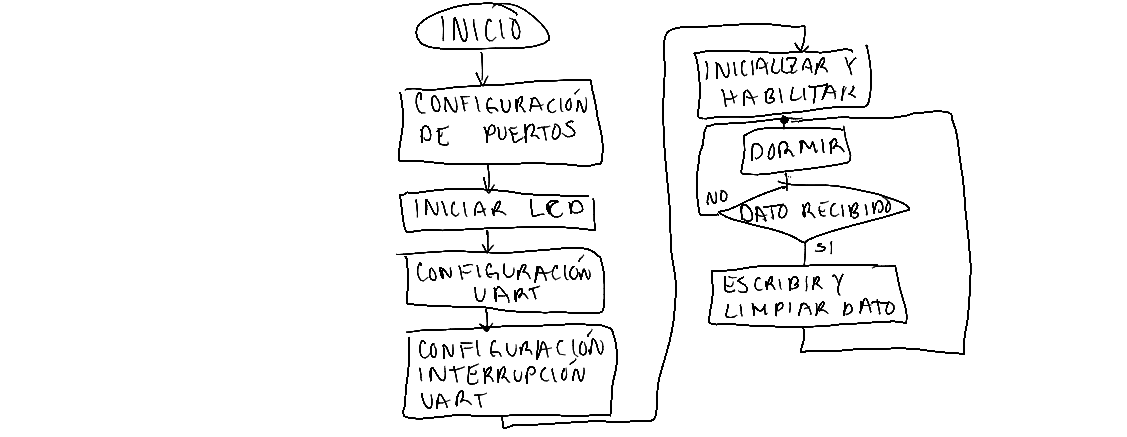 INICIO
CONFIGURACIÓN
DE PUERTOS
INICIAR LCD
CONFIGURACIÓN
UART
CONFIGURACIÓN
INTERRUPCIÓN
UART
INICIALIZAR Y
HABILITAR
DORMIR
NO
DATO RECIBIDO
SI
ESCRIBIR Y
LIMPIAR DATO